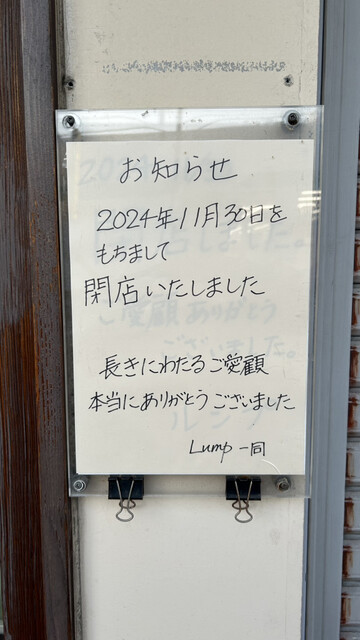 お知らせ
2024年11月30日を
もちまして
閉店いたしました
長きにわたるご愛顧
本当にありがとうございました
Lump 一同